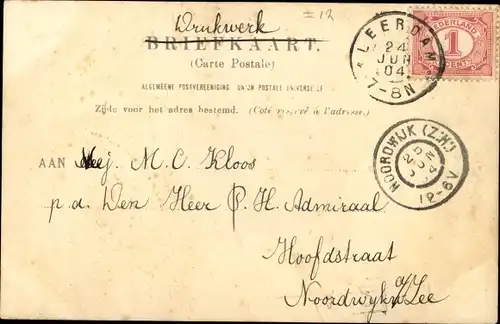 Drukwerk
± 12
BRIEFKAART.
(Carte Postale)
ALGEMEENE POSTVEREENIGING UNION POSTALE UNIVERSELLE
Zijde voor het adres bestemd. (Coté réservé à l'adresse.)
LEERDAM
24
JUN
04
7-8N
NEDERLAND
1
CENT
NOORDWIJK (Z:H:)
25
JUN
04
12-6V
AAN Mej M. C. Kloos
p. a. Den Heer P. H. Admiraal
Hoofdstraat
Noordwijk a/Zee